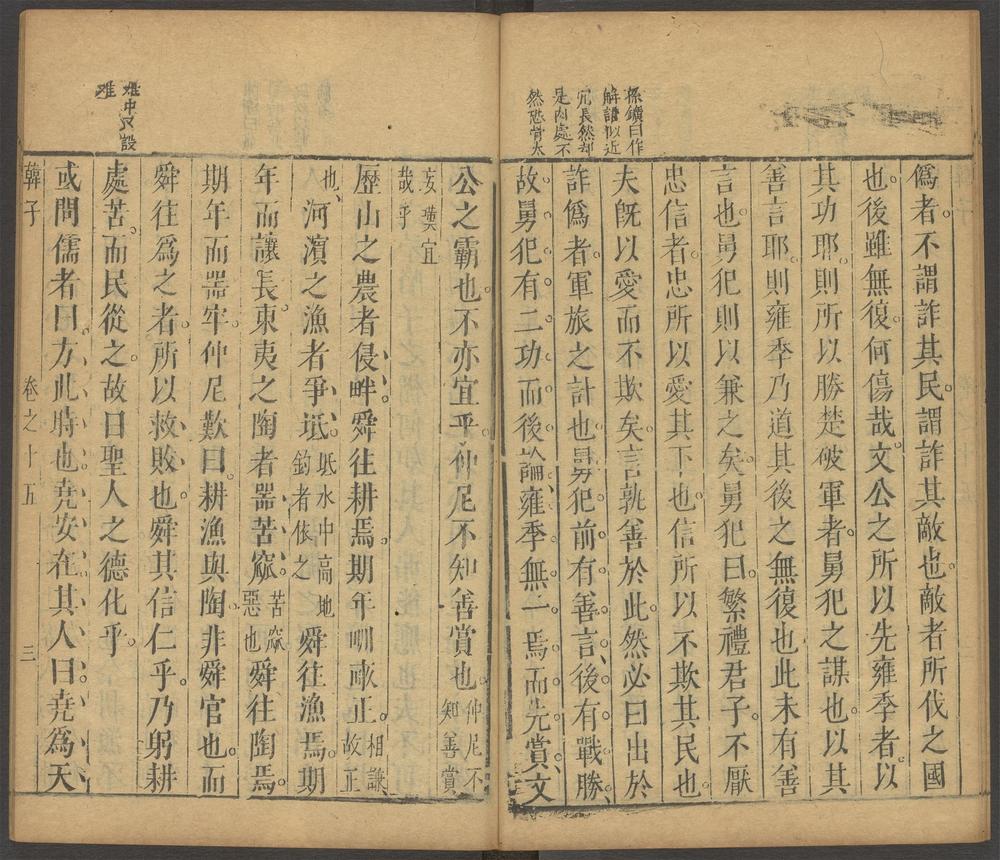 孫鑛曰作
解語似近
冗長然却
是內處不
然恐資太
爲者不謂詐其民謂詐其敵也敵者所伐之國
也後雖無復何傷哉文公之所以先雍季者以
其功耶則所以勝楚破軍者舅犯之謀也以其
善言耶則雍季乃道其後之無復也此未有善
言也舅犯則以兼之矣舅犯曰繁禮君子不厭
忠信者忠所以愛其下也信所以不欺其民也
夫旣以愛而不欺矣言孰善於此然必曰出於
詐僞者軍旅之計也舅犯前有善言後有戰勝
故舅犯有二功而後論雍季無一焉而先賞文
公之霸也不亦宜乎仲尼不知善賞也仲尼不知善賞
妄嘆宜哉乎
難中又設
難
歷山之農者侵畔舜往耕焉期年甽畝正相謙故正
也河濵之漁者爭坻坻水中高地釣者依之舜往漁焉期
年而讓長東夷之陶者器苦窳苦窳惡也舜往陶焉
期年而器牢仲尼歎曰耕漁與陶非舜官也而
舜往爲之者所以救敗也舜其信仁乎乃躬耕
處苦而民從之故曰聖人之德化乎
或問儒者曰方此時也堯安在其人曰堯爲天
韓子 卷之十五 三